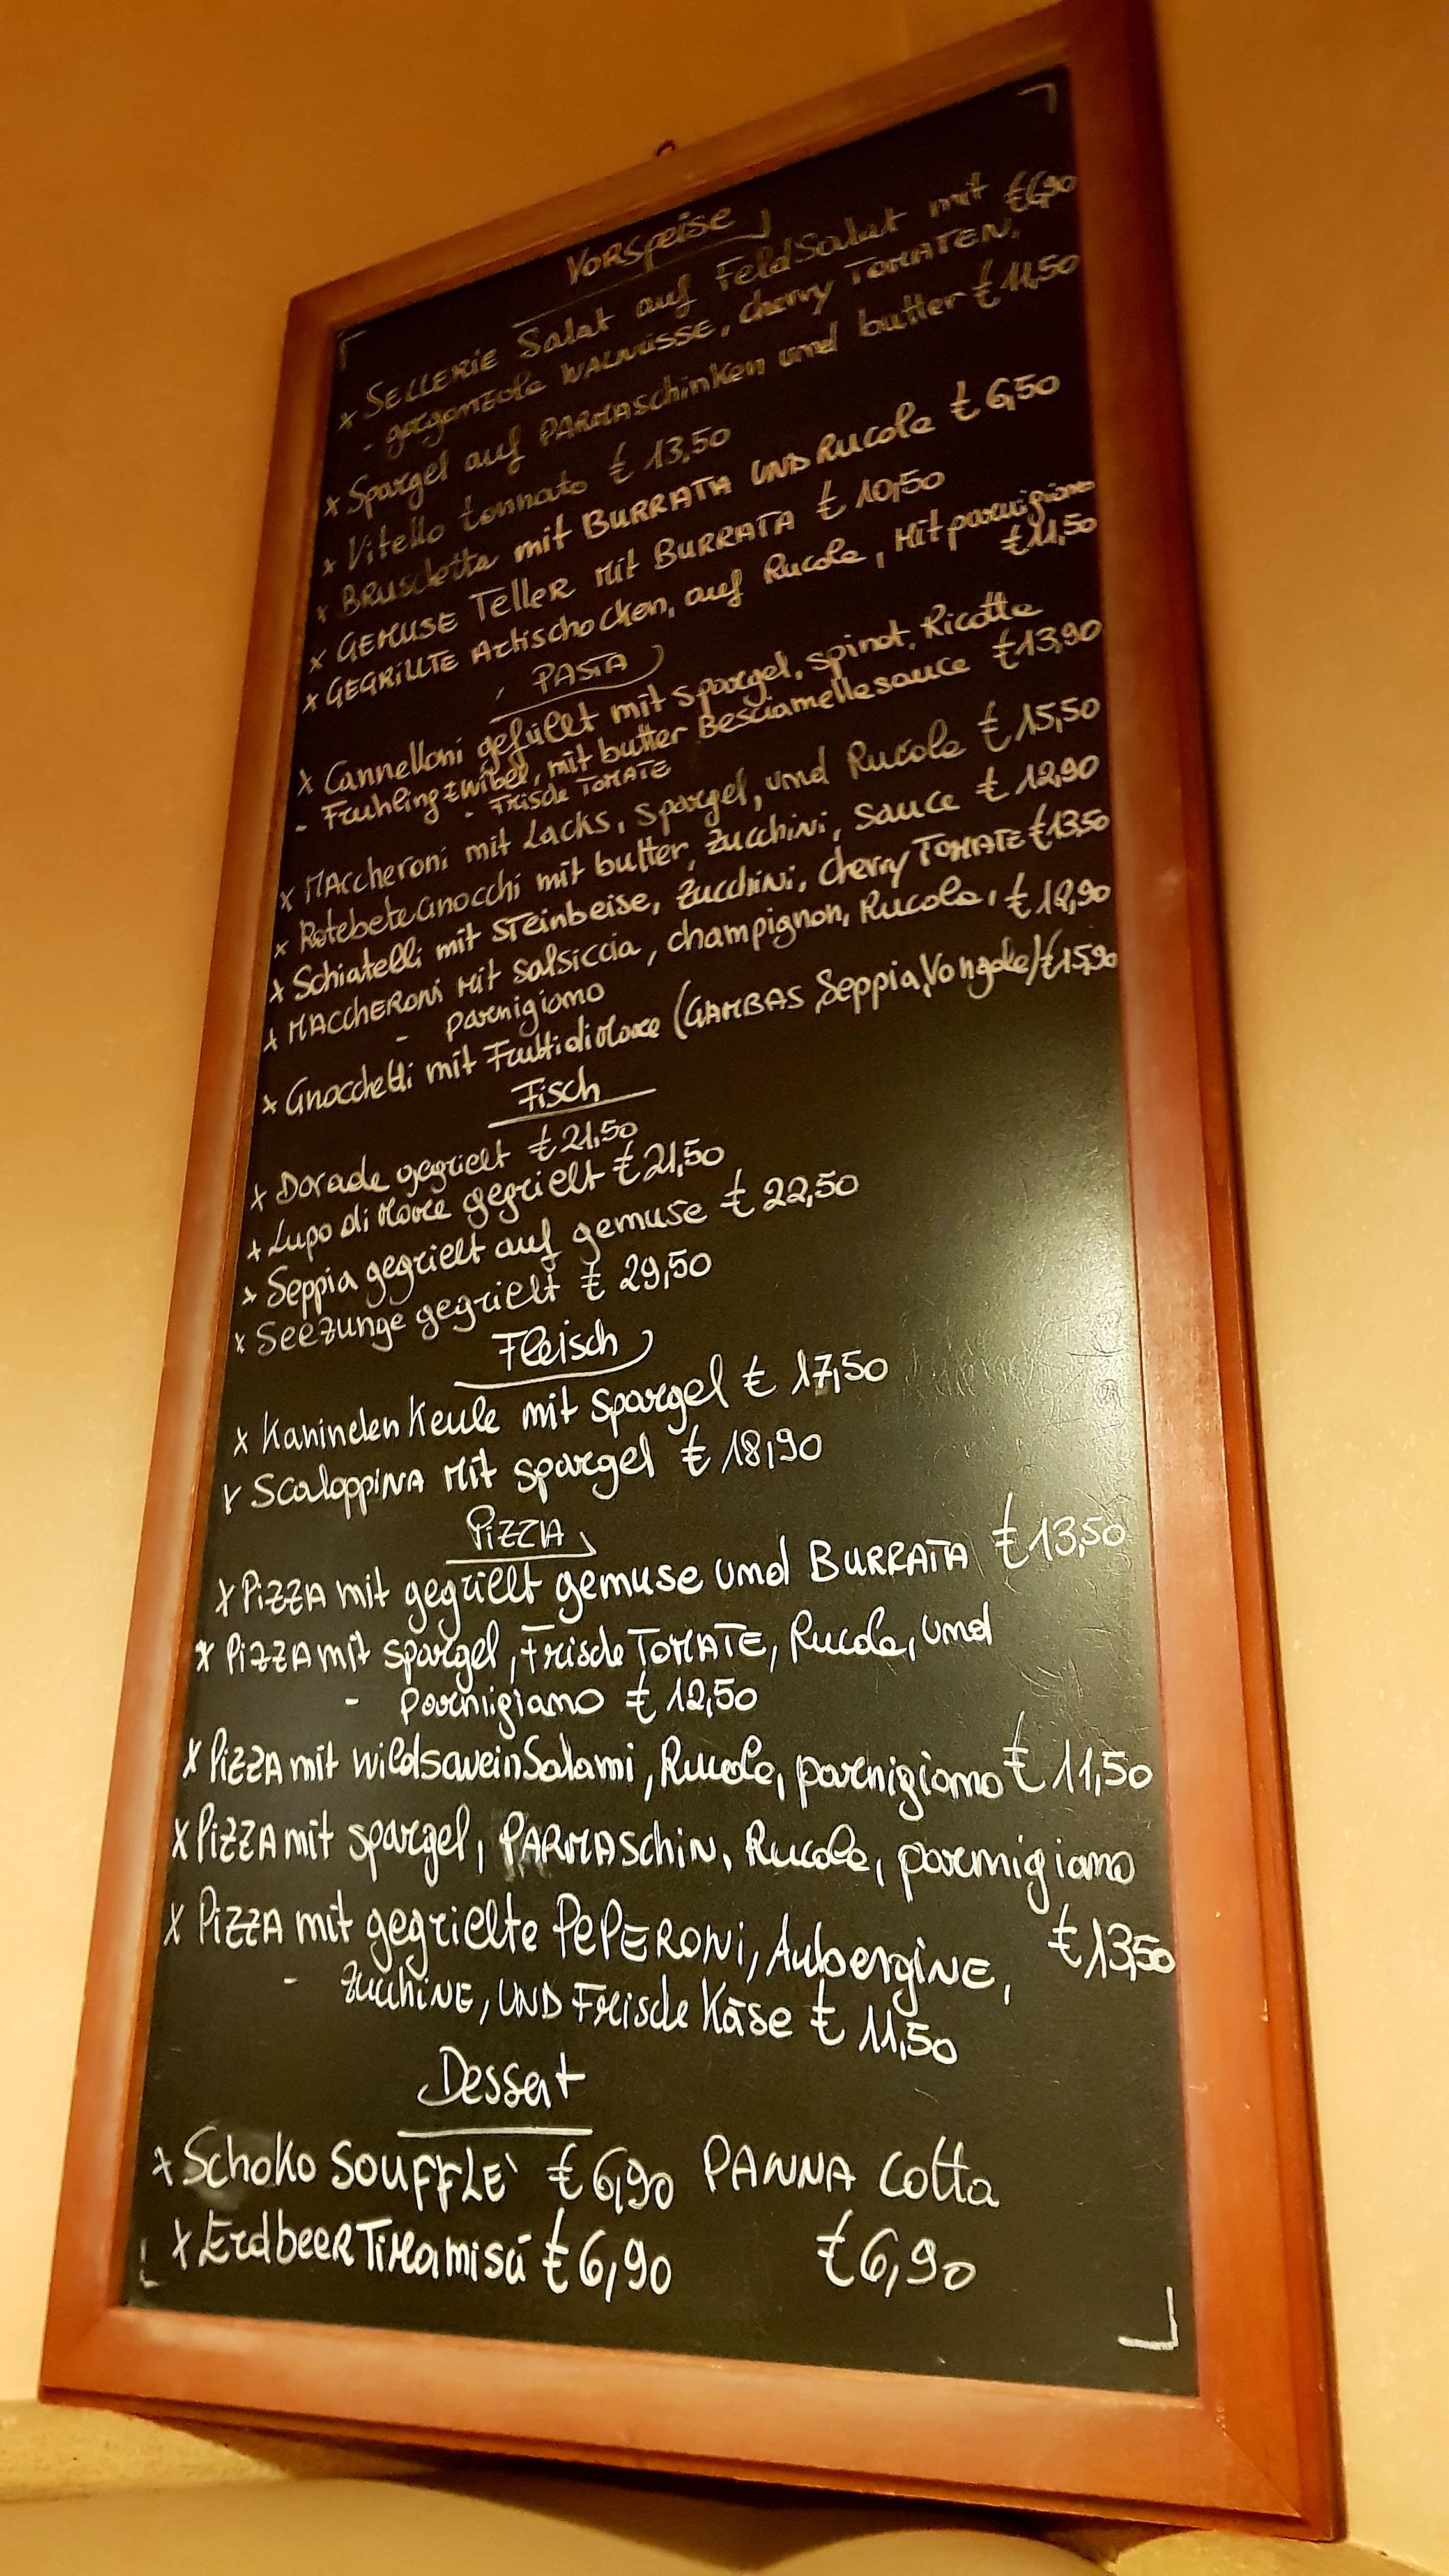 Vorspeise
x SELLERIE Salat auf FeldSalat mit €6,90
- gorgonzola WALNÜSSE, cherry TOMATEN,
x Spargel auf PARMAschinken und butter € 11,50
x Vitello tonnato € 13,50
x BRUSchetta mit BURRATA UND Rucola € 6,50
x GEMUSE Teller Mit BURRATA € 10,50
x GEGRILLTE Artischocken, auf Rucola, Mit parmigiano
€11,50
PASTA
x Cannelloni gefüllt mit spargel, spinat, Ricotta
- Fruhlingzwibel, mit butter Besciamellesauce €13,90
- Frische TOMATE
x MAccheroni mit Lacks, spargel, und Rucola € 15,50
x RotebeteGnocchi mit butter, Zucchini, sauce € 12,90
x Schiatelli mit STeinbeise, Zucchini, cherry TOMATE €13,50
x MACCHERONi Mit salsiccia, champignon, Rucola, € 12,90
- parmigiamo
x Gnocchetti mit Frutti di Mare (GAMBAS Seppia, Vongole) €15,90
Fisch
x Dorade gegrielt € 21,50
x Lupo di Mare gegrielt € 21,50
x Seppia gegrielt auf gemuse € 22,50
x Seezunge gegrielt € 29,50
Fleisch
x Kaninchen Keule mit spargel € 17,50
x ScaloppiNA Mit spargel € 18,90
PiZZA
x PiZZA mit gegrielt gemuse und BURRATA € 13,50
x PiZZA mit spargel, Frische TOMATE, Rucola, und
- parmigiamo € 12,50
x PiZZA mit wildsaweinSalami, Rucola, parmigiamo € 11,50
x PiZZA mit spargel, PARMASchiN, Rucola, parmigiamo
€ 13,50
x PiZZA mit gegrielte PEPERONi, AubergiNE,
- ZucchiNE, UND Frische Käse € 11,50
Dessert
x Schoko SOUFFLE` € 6,90 PANNA Cotta
x ErdbeeRTiRamisú € 6,90 € 6,90